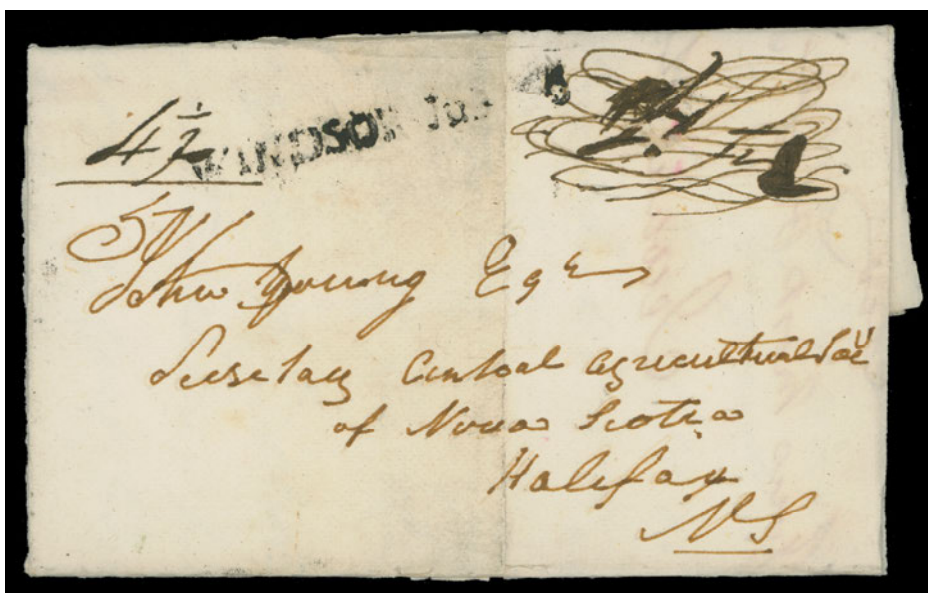 4½ WINDSOR
John Young Esqr
Secretary Central Agricultural Socy
of Nova Scotia
Halifax
NS